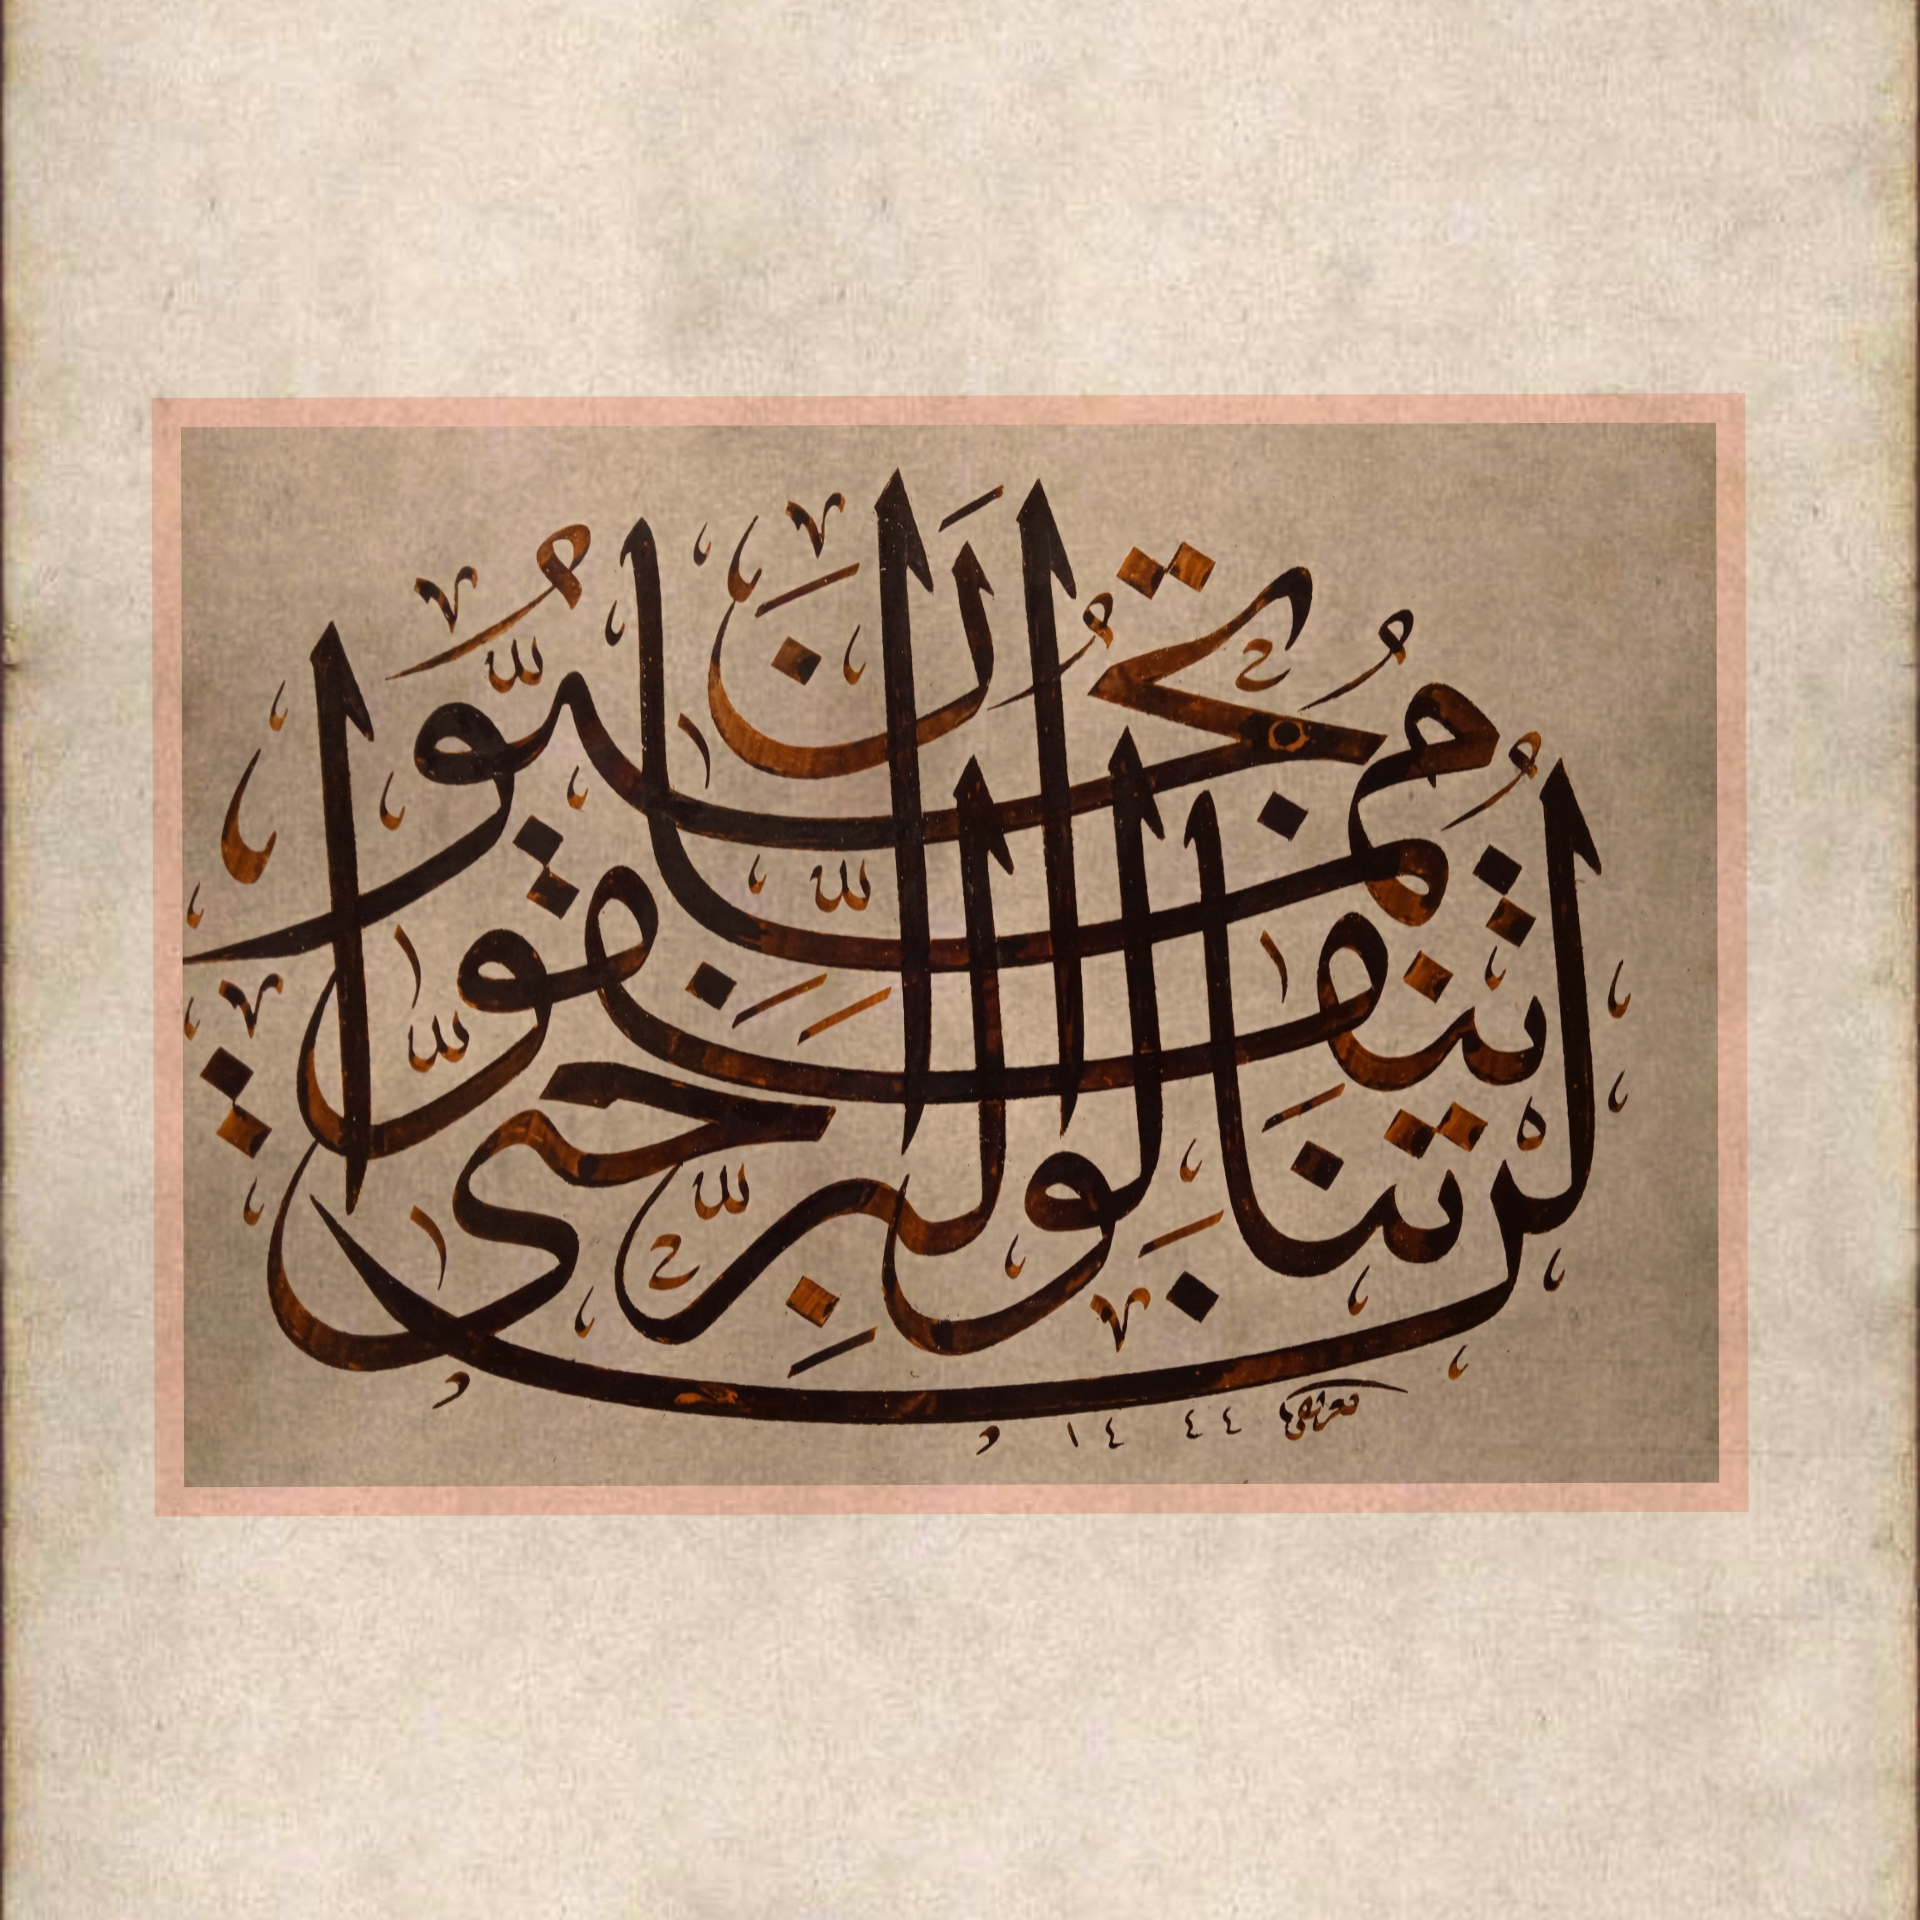 لن تنالوا البر حتى تنفقوا مما تحبون
١٤٤٤